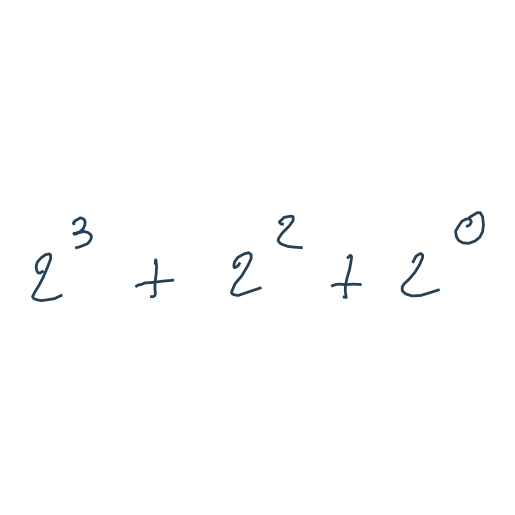 2³ + 2² + 2⁰